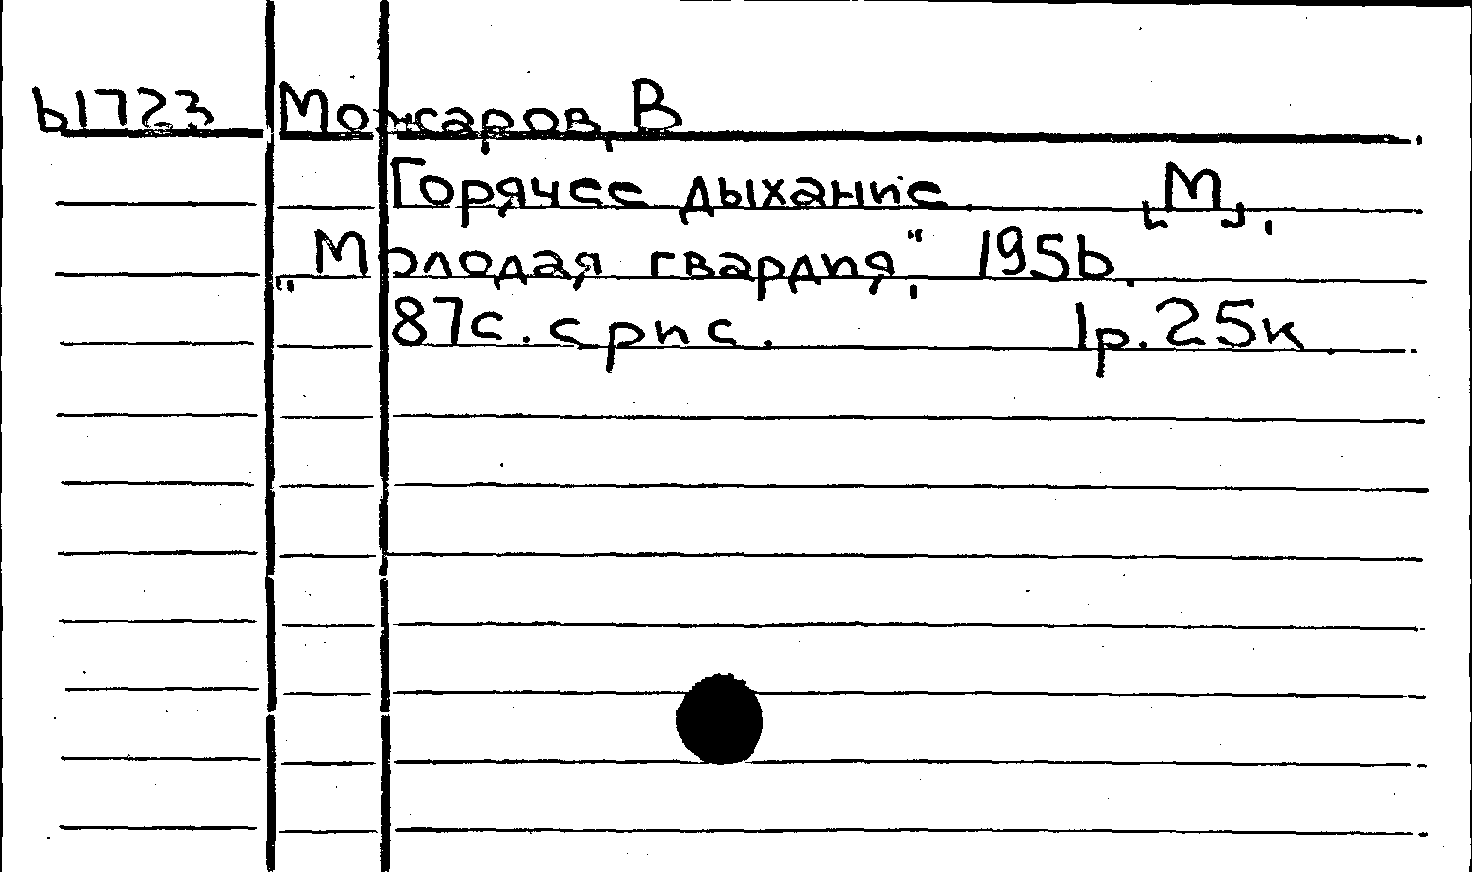 61723 Можаров, В
Горячее дыхание. [М],
„Молодая гвардия“, 1956.
87с. с рис. 1р. 25к.